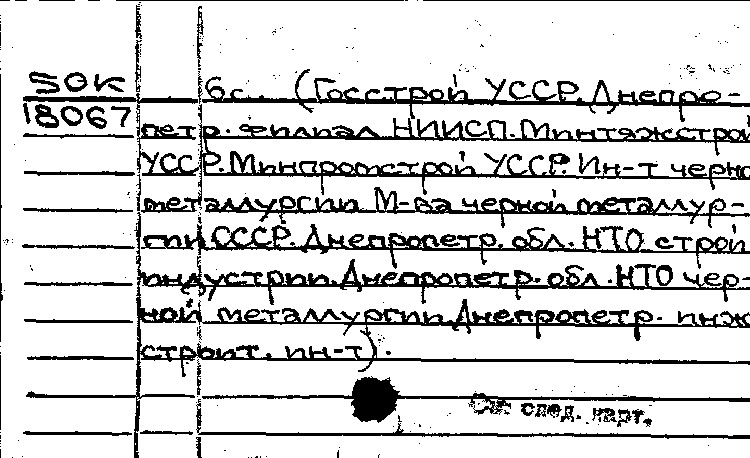 50К
18067
6с. (Госстрой УССР. Днепро-
петр. филиал НИИСП. Минтяжстрой
УССР. Минпромстрой УССР. Ин-т черно
металлургии М-ва черной металлур-
гии СССР. Днепропетр. обл. НТО строй
индустрии. Днепропетр. обл. НТО чер-
ной металлургии. Днепропетр. инж
строит. ин-т).
См. след. карт.